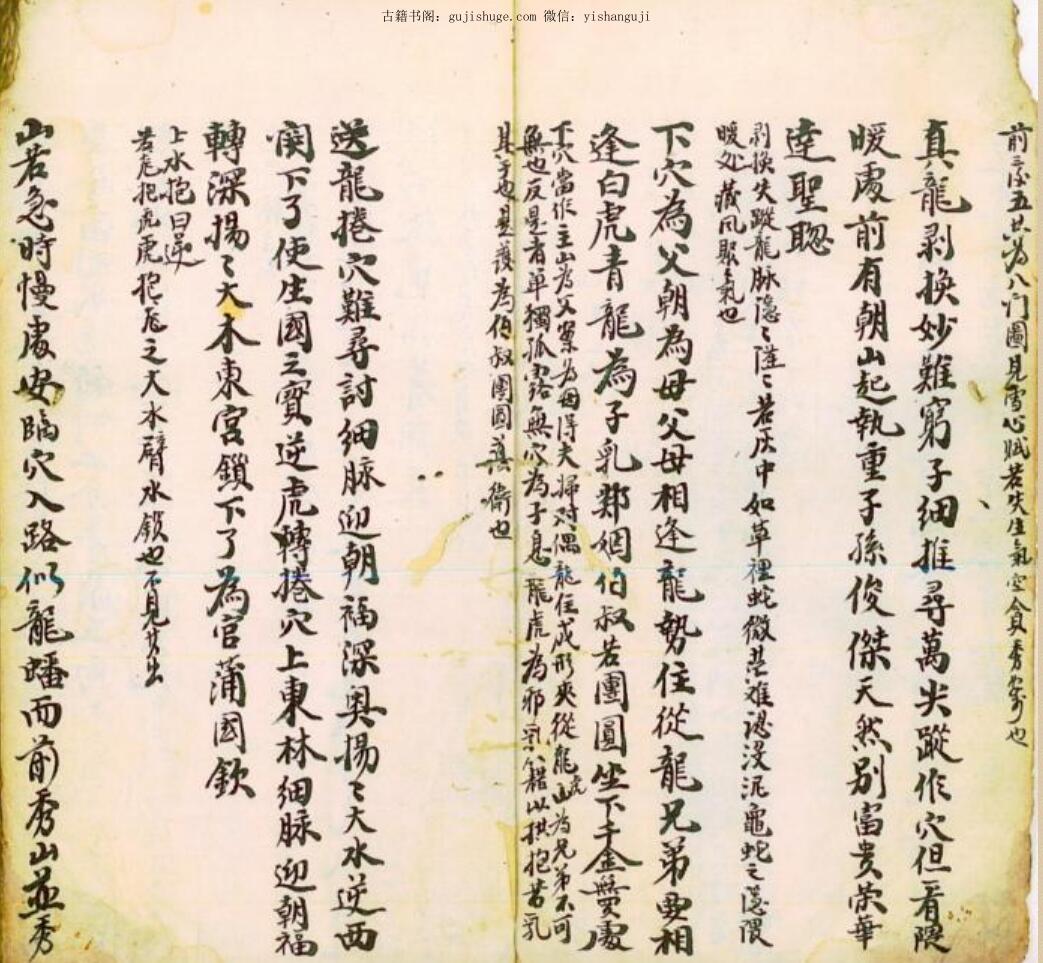 古籍书阁：gujishuge.com 微信：yishanguji
前之後五共为八门圖見雪心賦若失生氣空貪秀也
真龍剥换妙難窮子细推尋萬失蹤作穴但看隈
暖處前有朝山起執重子孫俊傑天然别富贵荣華
達聖聦
剥换失蹤龍脉隐〻隆〻若灰中如草裡蛇微茫难認没泥龜蛇之隐隈
暖处藏风聚氣也
下穴為父朝為母父母相逢龍势住從龍兄弟要相
逢白虎青龍為子乳鄰姻伯叔若團圓坐下千金盤處
下穴當作主山為父案为母得夫婦对偶龍住成形夾從龍虎山为兄弟不可
無也反是者單獨孤露無穴為子息龍虎為邪以拱抱者乳
其子也是護為伯叔團圓護衛也
送龍捲穴難尋討细脉迎朝福深奥揚〻大水逆西
関下了便生國之寳逆虎轉捲穴上東林细脉迎朝福
轉深揚〻大水東宫鎖下了為官蒲國欽
上水抱曰逆
若龙抱虎虎抱龙之大水臂水鎖也不見其出
山若急時慢處安臨穴入路似龍蟠而前秀山並秀